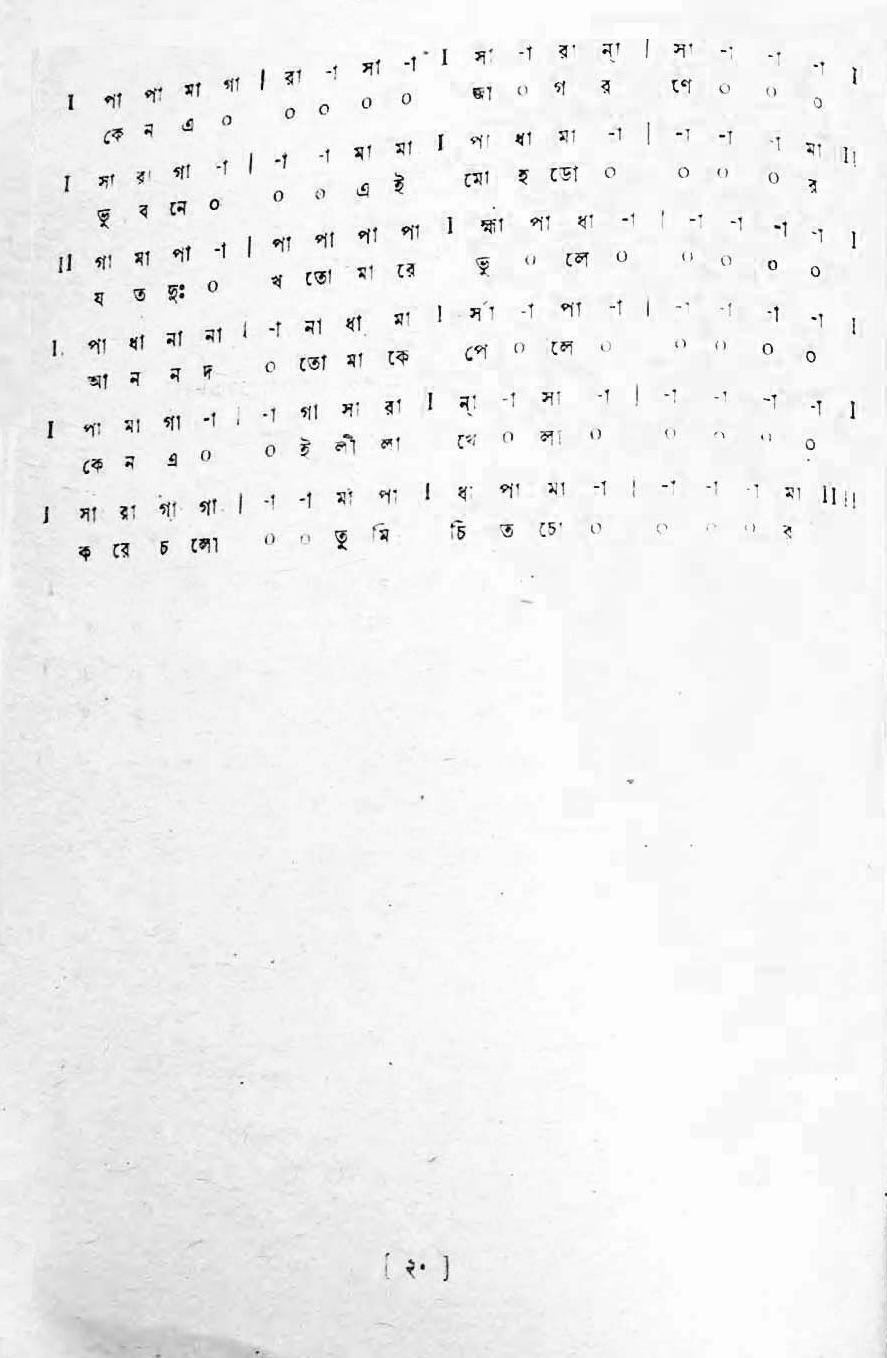 I পা পা মা গা | রা -া সা -া I সা -া রা ন্‌া | সা -া -া -া I
কে ন এ ০ ০ ০ ০ ০ জা ০ গ র ণে ০ ০ ০
I সা রা গা -া | -া -া মা মা I পা ধা মা -া | -া -া -া মা II
ভু ব নে ০ ০ ০ এ ই মো হ ডো ০ ০ ০ ০ র
II গা মা পা -া | পা পা পা পা I হ্মা পা ধা -া | -া -া -া -া I
য ত দুঃ ০ খ তো মা রে ভু ০ লে ০ ০ ০ ০ ০
I পা ধা না না | -া না ধা মা I র্সা -া পা -া | -া -া -া -া I
আ ন ন দ ০ তো মা কে পে ০ লে ০ ০ ০ ০ ০
I পা মা গা -া | -া গা সা রা I ন্‌া -া সা -া | -া -া -া -া I
কে ন এ ০ ০ ই লী লা খে ০ লা ০ ০ ০ ০ ০
I সা রা গা গা | -া -া মা পা I ধা পা মা -া | -া -া -া মা IIII
ক রে চ লো ০ ০ তু মি চি ত চো ০ ০ ০ ০ র
[ ২০ ]